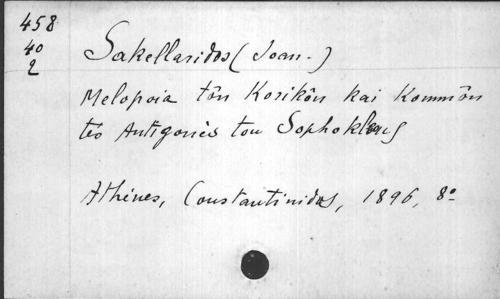 458
40
2
Sakellaridos (Joan.)
Melopoia tôn Korikôn kai Kommôn
tês Antigonès tou Sophokleous
Athènes, Constantinidos, 1896, 8º